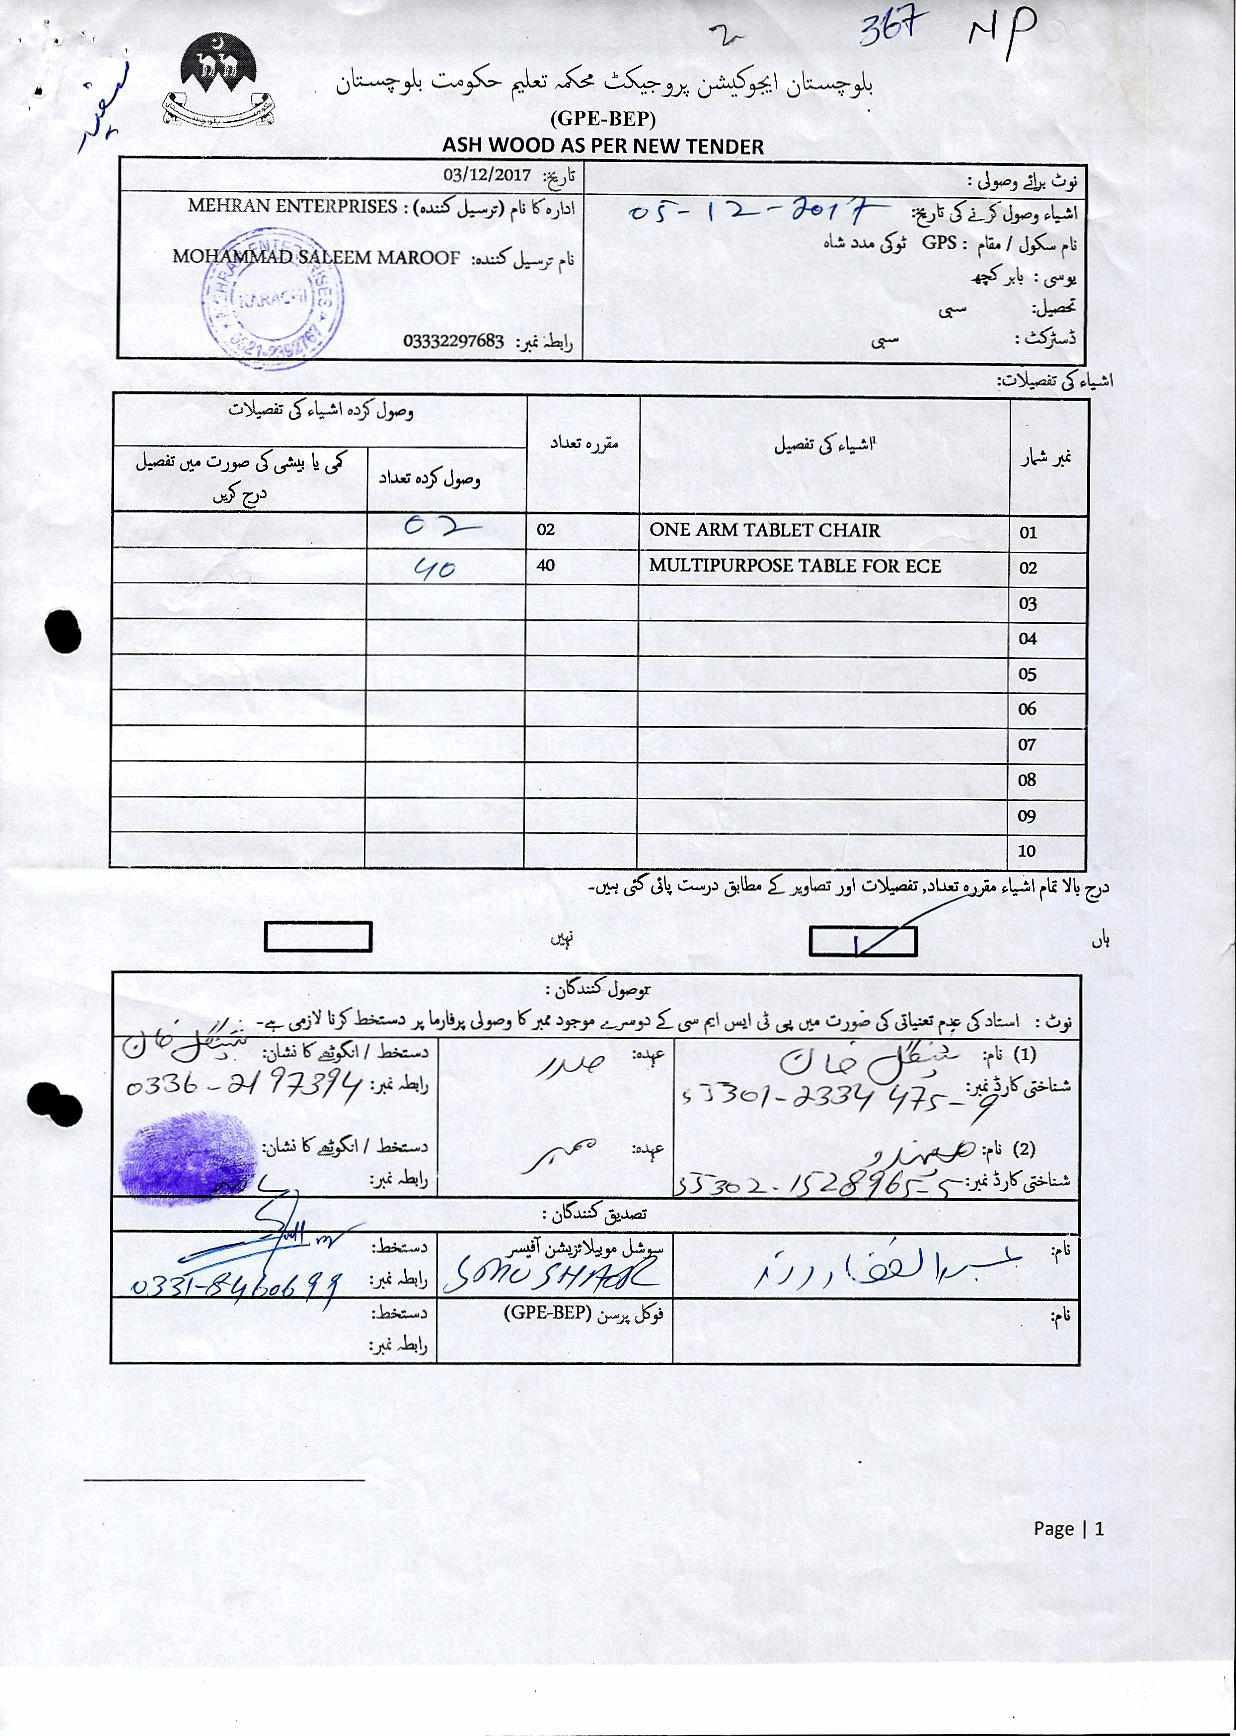 2 367 NP
بلوچستان ایجوکیشن پروجیکٹ محکمہ تعلیم حکومت بلوچستان
(GPE-BEP)
ASH WOOD AS PER NEW TENDER
نوٹ برائے وصولی :
اشیاء وصول کرنے کی تاریخ: 05-12-2017
نام سکول / مقام : GPS ٹوکی مدد شاہ
یوسی : بابر کچھ
تحصیل: سبی
ڈسٹرکٹ : سبی
تاریخ: 03/12/2017
ادارہ کا نام (ترسیل کنندہ) : MEHRAN ENTERPRISES
نام ترسیل کنندہ: MOHAMMAD SALEEM MAROOF
KARACHI
رابطہ نمبر: 03332297683
اشیاء کی تفصیلات:
نمبر شمار اشیاء کی تفصیل مقررہ تعداد وصول کردہ اشیاء کی تفصیلات
وصول کردہ تعداد کمی یا بیشی کی صورت میں تفصیل درج کریں
01 ONE ARM TABLET CHAIR 02 02
02 MULTIPURPOSE TABLE FOR ECE 40 40
03
04
05
06
07
08
09
10
درج بالا تمام اشیاء مقررہ تعداد, تفصیلات اور تصاویر کے مطابق درست پائی گئی ہیں۔
ہاں نہیں
وصول کنندگان :
نوٹ : استاد کی عدم تعیناتی کی صورت میں پی ٹی ایس ایم سی کے دوسرے موجود ممبر کا وصولی پرفارما پر دستخط کرنا لازمی ہے۔
(1) نام: خان عہدہ: صدر دستخط / انگوٹھے کا نشان: خان
شناختی کارڈ نمبر: 55301-2334475-9 رابطہ نمبر: 0336-2197394
(2) نام: عہدہ: ممبر دستخط / انگوٹھے کا نشان:
شناختی کارڈ نمبر: 55302-1528965-5 رابطہ نمبر:
تصدیق کنندگان :
نام: عبدالغفار رند سوشل موبیلائزیشن آفیسر دستخط:
رابطہ نمبر: 0331-8460699
نام: فوکل پرسن (GPE-BEP) دستخط:
رابطہ نمبر:
Page | 1